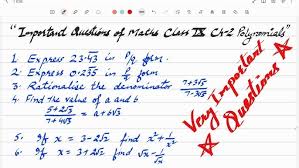 "Important Questions of Maths Class IX Ch-2 Polynomials"
1. Express 23.43 in p/q form.
2. Express 0.235 in p/q form
3. Rationalise the denominator (7+3√5)/(7-3√5)
4. Find the value of a and b
(5+2√3)/(7+4√3) = a+b√3
5. If x = 3-2√2 find x²+1/x²
6. If x = 3+2√2 find √x-1/√x
Very Important
Questions